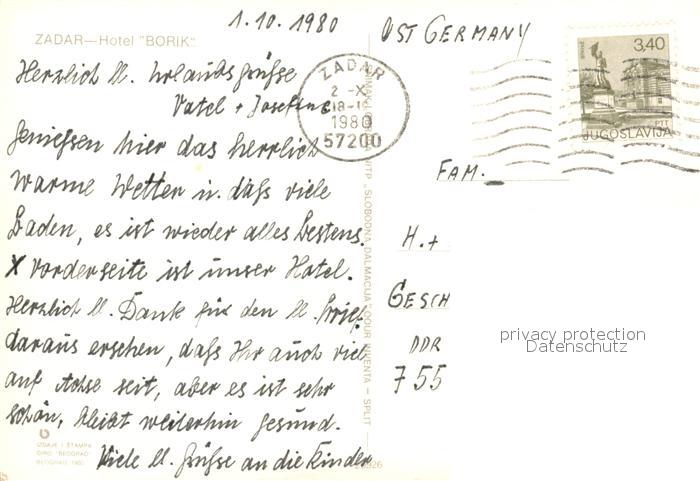 1.10.1980
OST GERMANY
ZADAR—Hotel "BORIK"
Herzlich ll. Urlaubsgrüsse
Vatel + Josefine
genießen hier das herrlich
warme Wetter u. dafs viele
Baden, es ist wieder alles bestens.
X Vorderseite ist unser Hotel.
Herzlich ll. Dank für den ll. Brief,
daraus ersehen, dafs Ihr auch viel
auf Achse seit, aber es ist sehr
schön, bleibt weiterhin gesund.
Viele ll. Grüfse an die Kinder
ZADAR
2-X.
1980
57200
3,40
PTT
JUGOSLAVIJA
FAM.
H. +
GESCH
DDR
755
privacy protection
Datenschutz
IZDAJE I ŠTAMPA
GIRO "BEOGRAD"
BEOGRAD 1980
"SLOBODNA DALMACIJA" - SPLIT